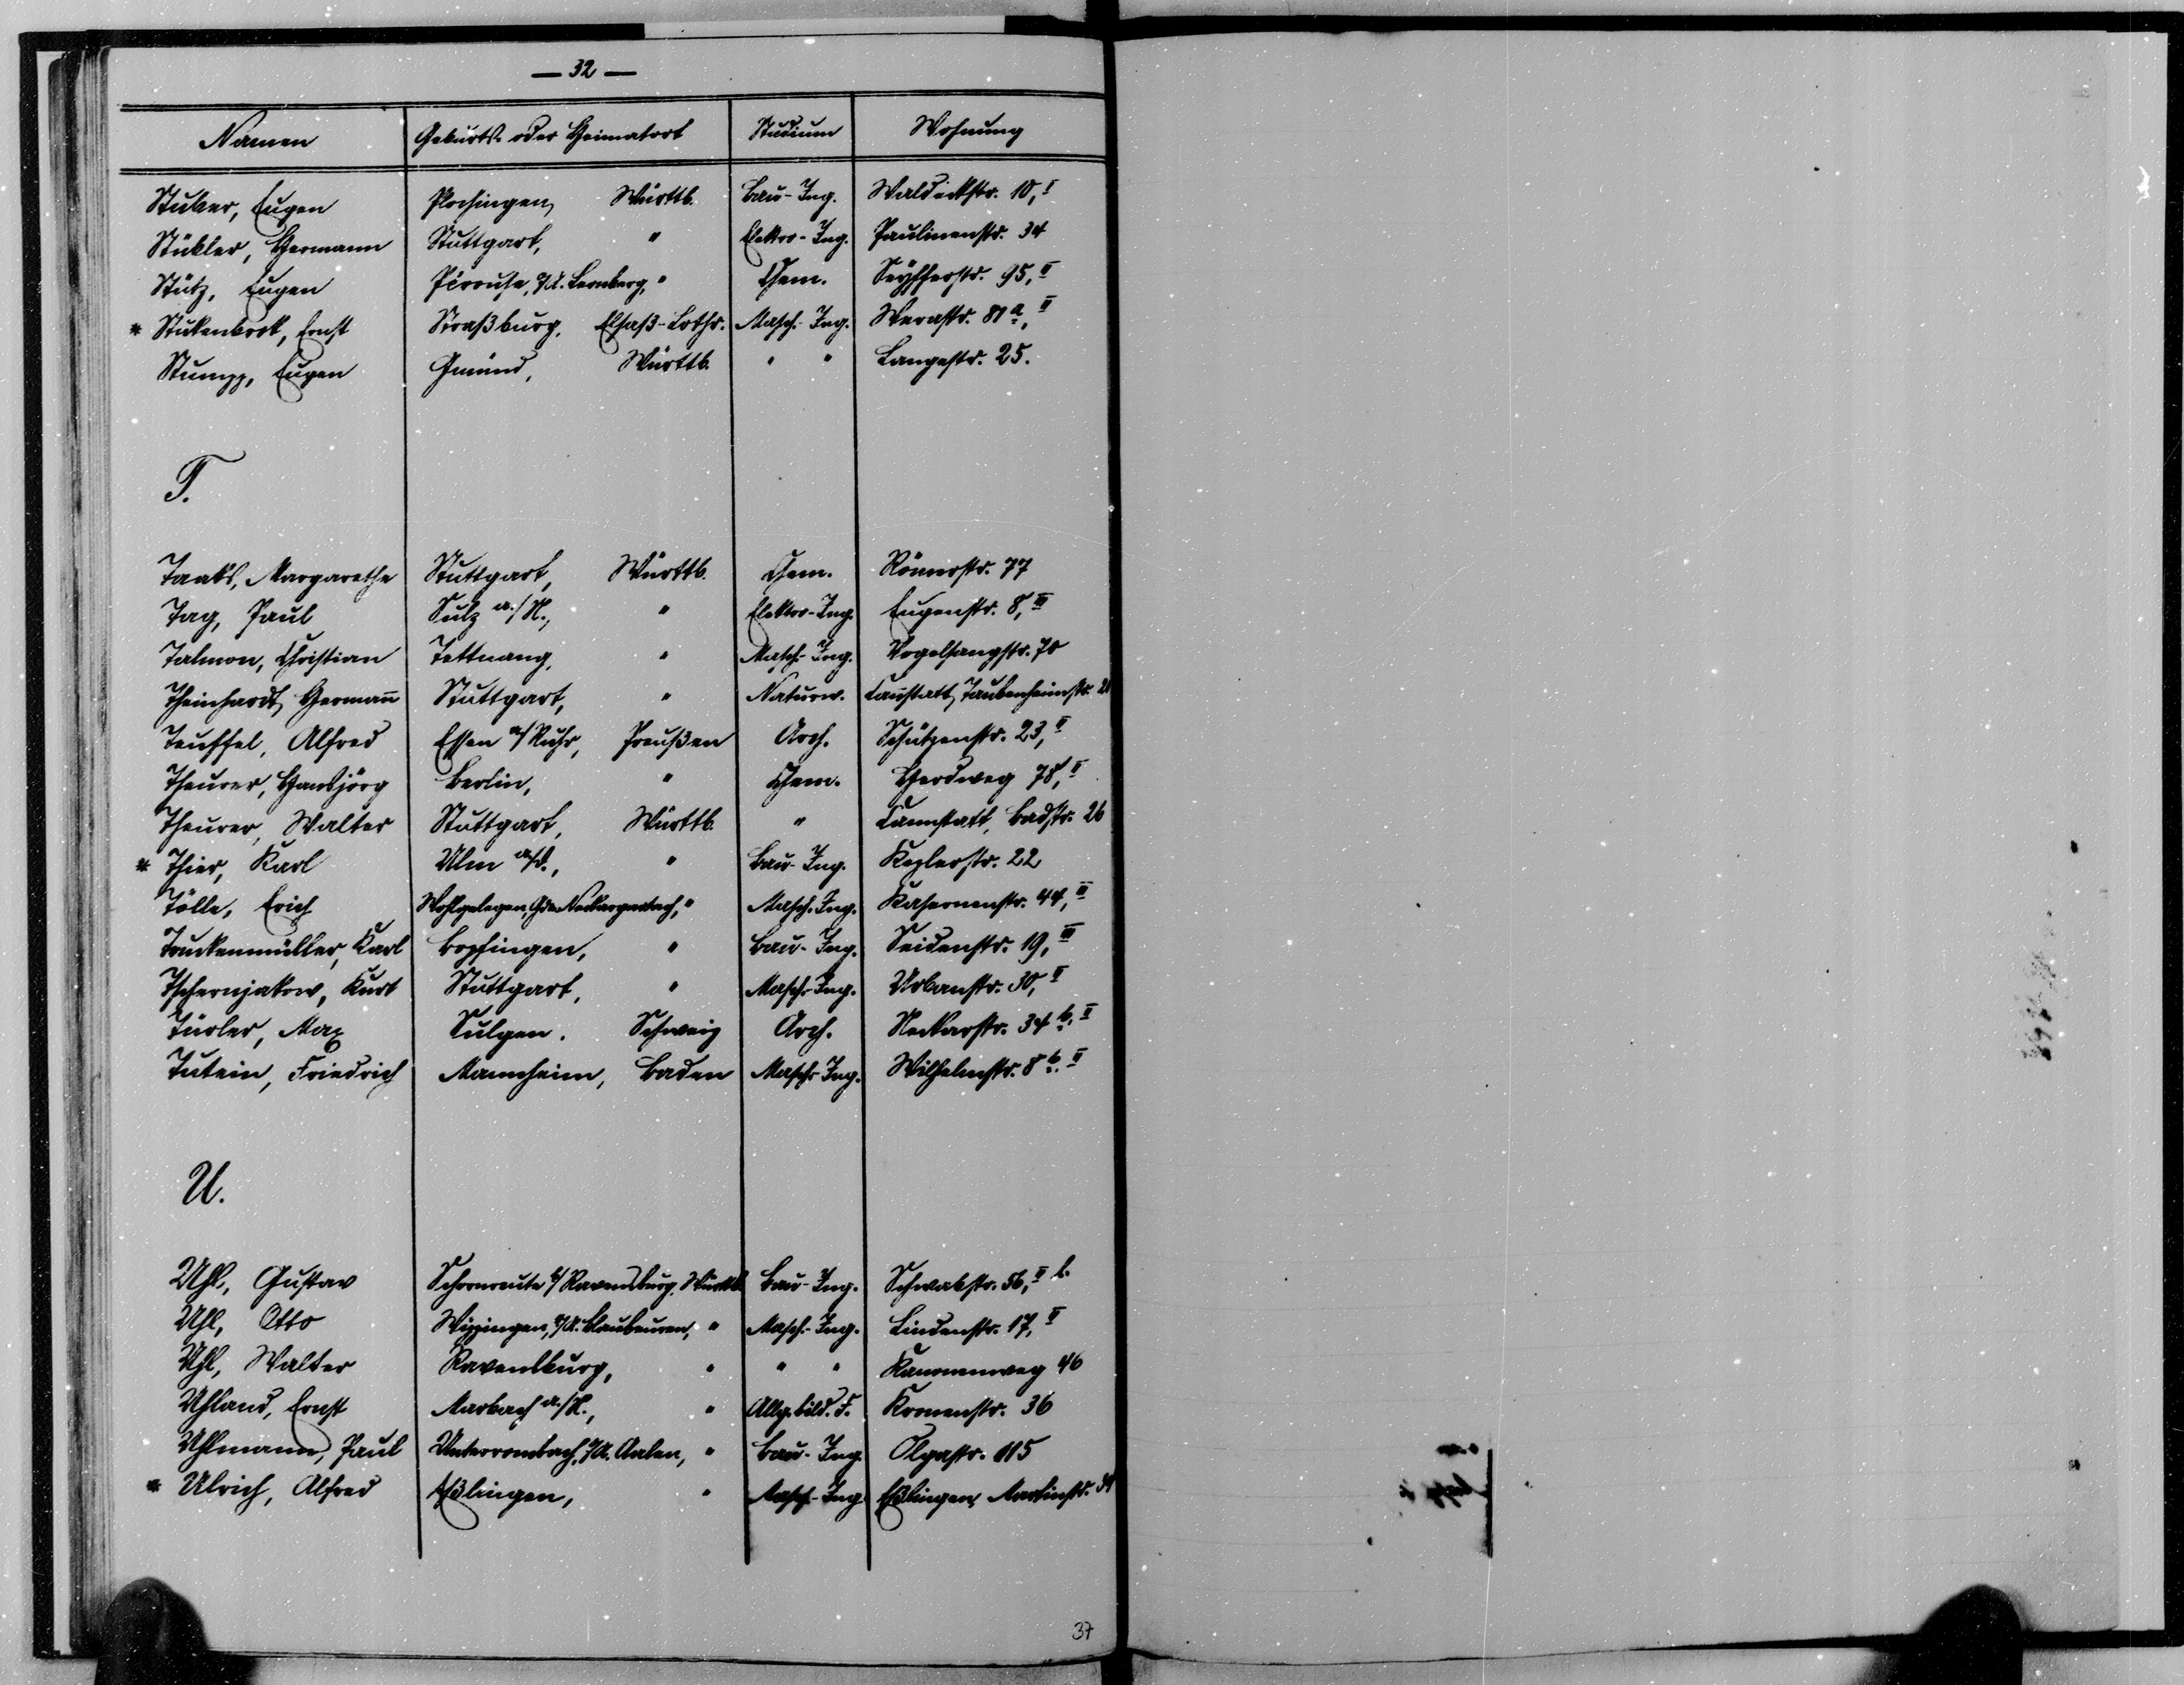 — 32 —
Namen Geburts- oder Heimatort Studium Wohnung
Stuber, Eugen Plochingen, Württb. Bau-Ing. Waldeckstr. 10, I
Stükler, Hermann Stuttgart, " Elektro-Ing. Paulinenstr. 34
Stütz, Eugen Pérouse, O/A. Leonberg, " Chem. Seyfferstr. 95, II
* Stukenbrok, Ernst Straßburg, Elsaß-Lothr. Masch.-Ing. Werastr. 81 a, II
Stumpp, Eugen Gmünd, Württb. " " Langestr. 25.
T.
Taaks, Margarethe Stuttgart, Württb. Chem. Römerstr. 77
Tag, Paul Sulz a./N., " Elektro-Ing. Eugenstr. 8, III
Talmon, Christian Tettnang, " Masch.-Ing. Vogelsangstr. 70
Theinhardt, Hermañ Stuttgart, " Naturw. Cañstatt, Taubenheimstr. 21
Teuffel, Alfred Essen a/Ruhr, Preußen Arch. Schützenstr. 23, II
Theurer, Hansjörg Berlin, " Chem. Herdweg 78, II
Theurer, Walter Stuttgart, Württb. " Cannstatt, Badstr. 26
* Thier, Karl Ulm a/d., " Bau-Ing. Keplerstr. 22
Tölle, Erich Wohlgelegen, Gde. Neckargartach, " Masch.-Ing. Kasernenstr. 44, III
Truckenmüller, Karl Bopfingen, " Bau-Ing. Seidenstr. 19, III
Tschernjakow, Kurt Stuttgart, " Masch-Ing. Urbanstr. 30, II
Türler, Max Sulgen, Schweiz Arch. Neckarstr. 34 b, II
Tutein, Friedrich Mannheim, Baden Masch-Ing. Wilhelmstr. 8 b. II
U.
Uhl, Gustav Schornreute b/ Ravensburg, Württb. Bau-Ing. Schwabstr. 56, II l.
Uhl, Otto Wippingen, O/A. Blaubeuren, " Masch.-Ing. Lindenstr. 17, II
Uhl, Walter Ravensburg, " " " Kanonenweg 46
Uhland, Ernst Marbach a./N., " Allg. bild. F. Kronenstr. 36
Uhlmann, Paul Unterrombach, O/A. Aalen, " Bau-Ing. Olgastr. 115
* Ulrich, Alfred Eßlingen, " Masch-Ing. Eßlingen, Martinstr.
37